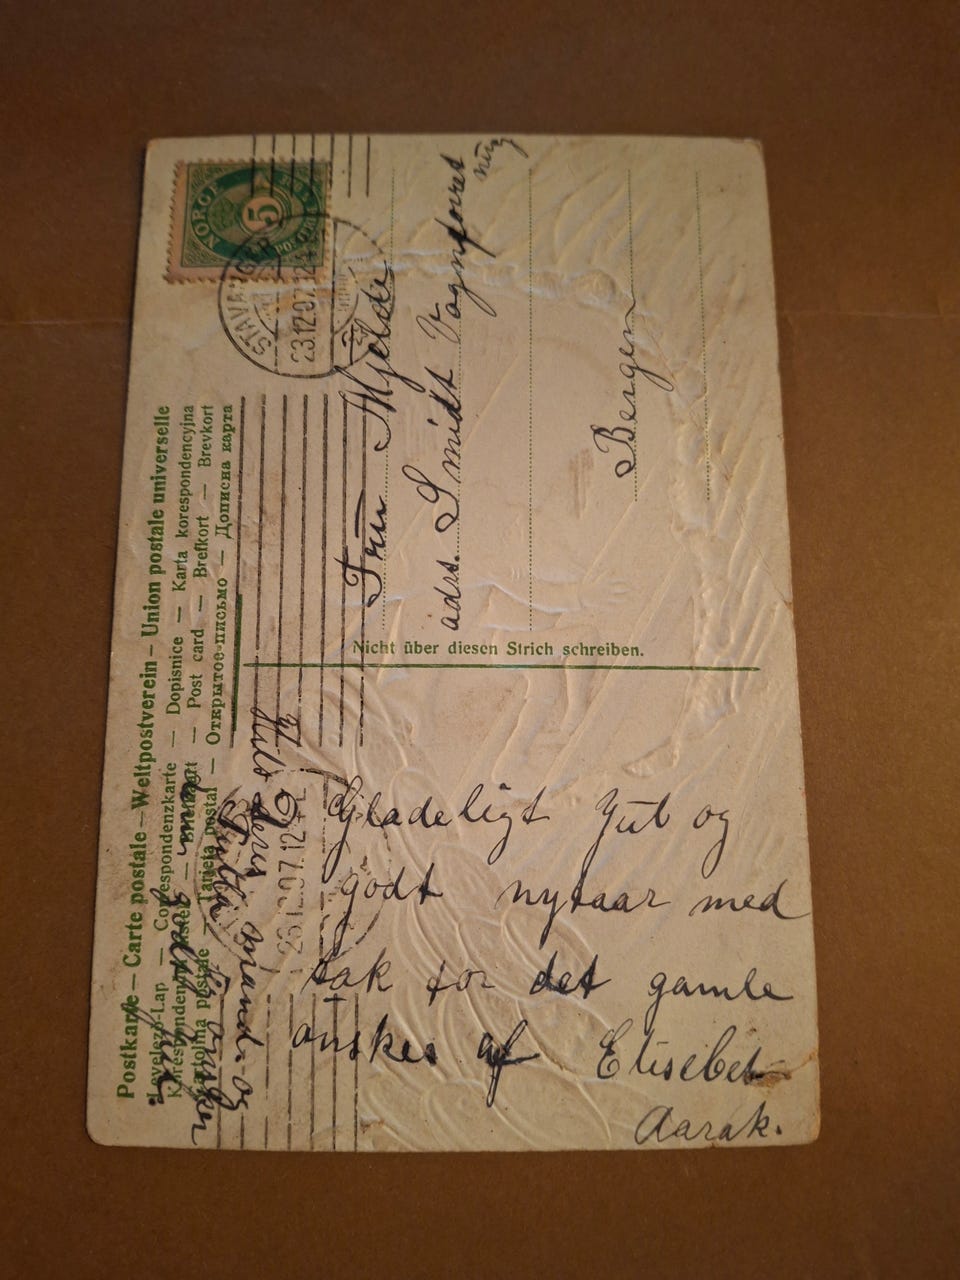 Postkarte – Carte postale – Weltpostverein – Union postale universelle
Levelező-Lap — Correspondenzkarte — Dopisnice — Karta korespondencyjna
Post card — Brefkort — Brevkort
Cartolina postale — Tarjeta postal — Открытое письмо — Дописна карта
NORGE
5
POSTFRIM
STAVANGER
23.12.07.12
Fru Mjelde
adrs. Smidt Vognforret
Bergen
Nicht über diesen Strich schreiben.
23.12.07.12
Gladeligt Jul og
godt nytaar med
tak for det gamle
ønskes af Elisebet
Aarak.
Hils
deres mand og